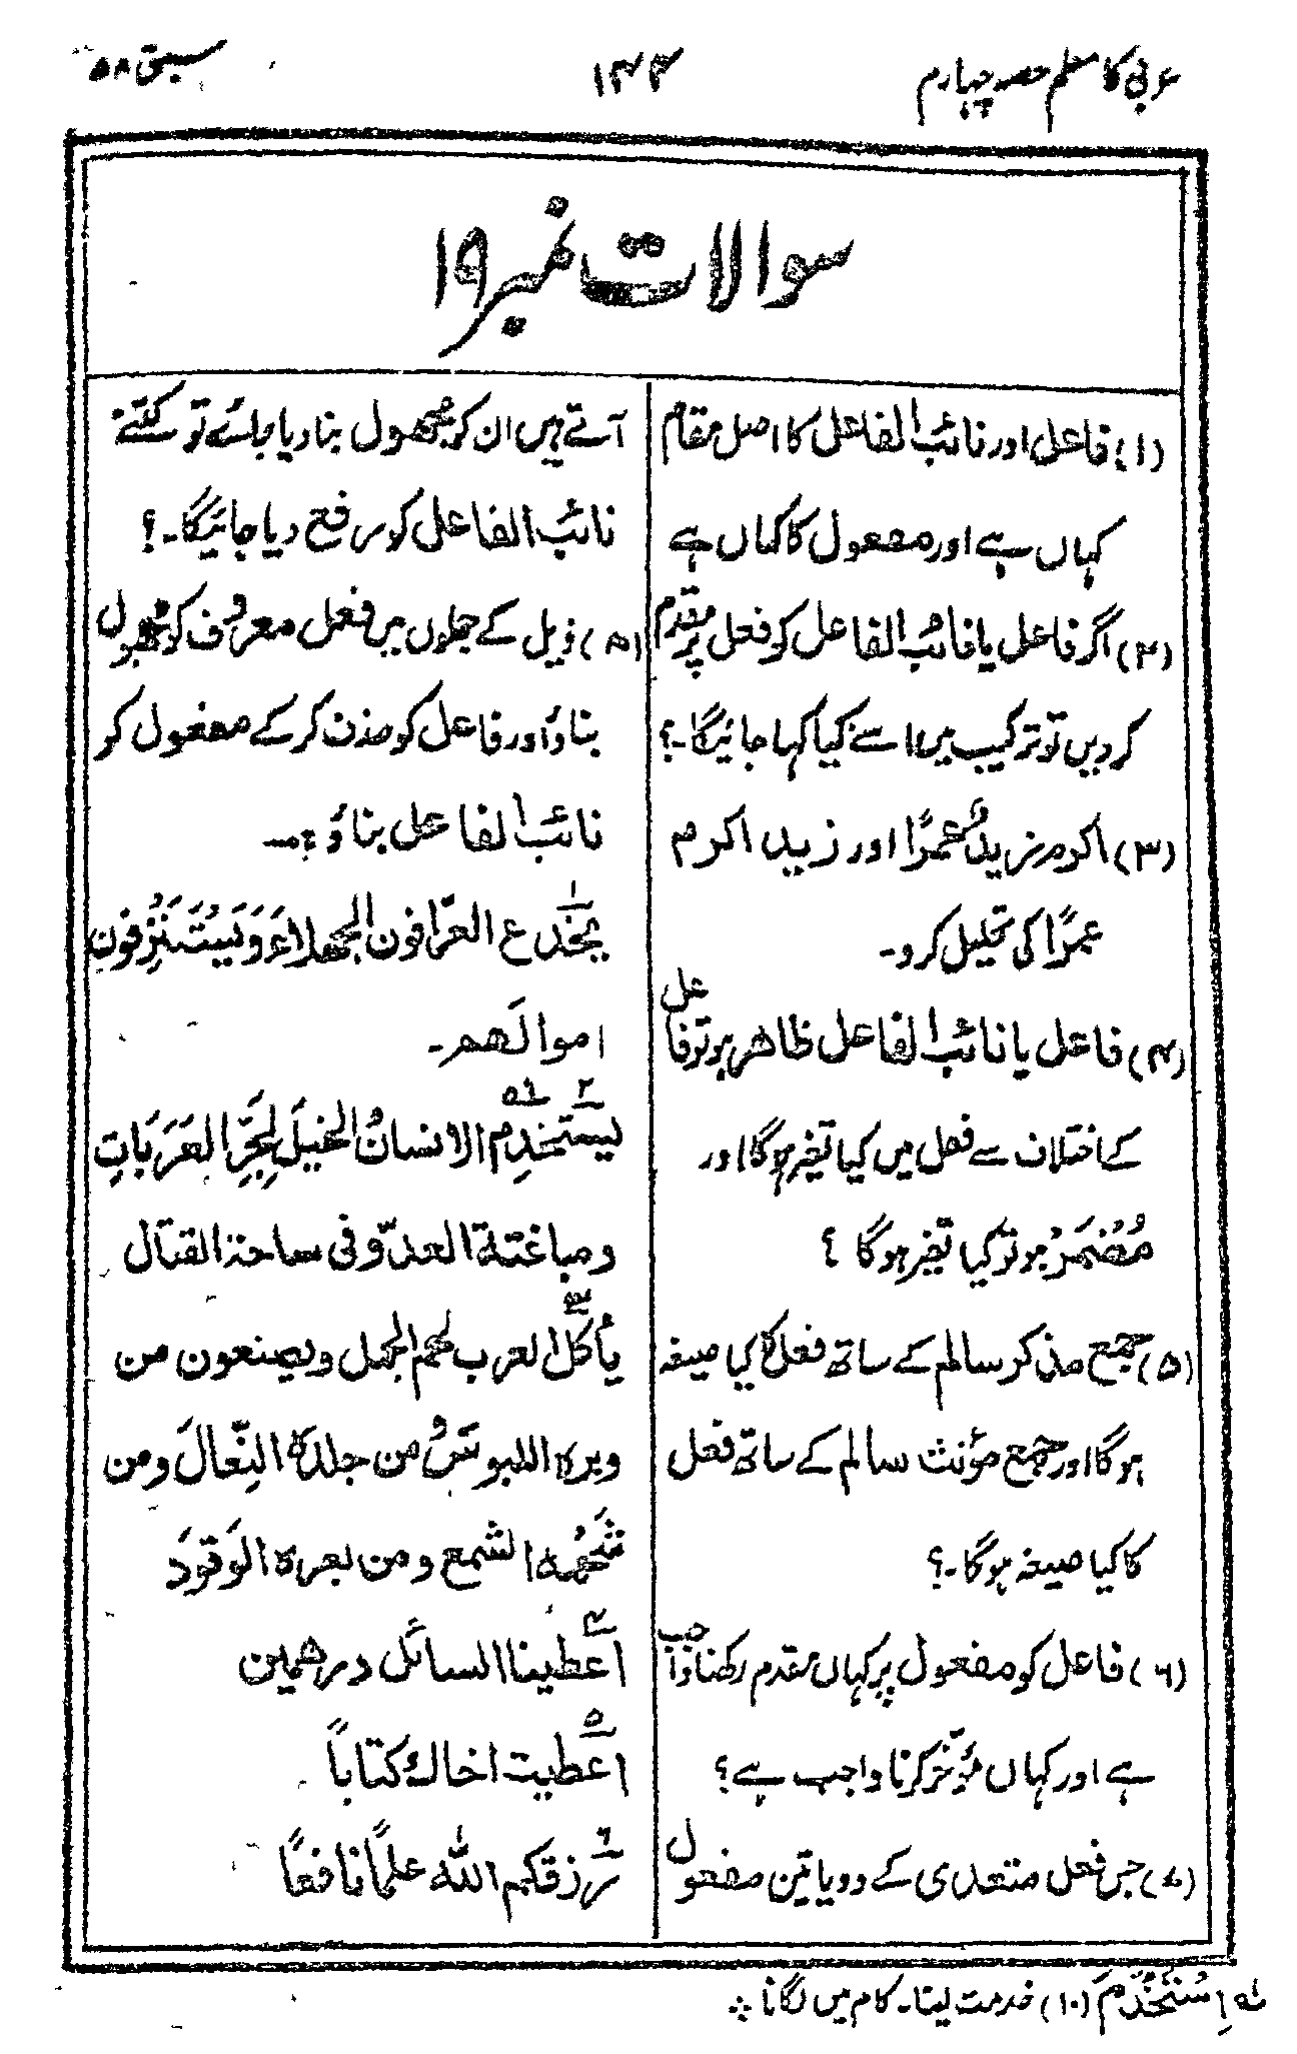 عربی کا معلم حصہ چہارم
۱۴۴
سبق ۵۸
سوالات نمبر ۱۹
(۱) فاعل اور نائب الفاعل کا اصل مقام
کہاں ہے اور مفعول کا کہاں ہے
(۲) اگر فاعل یا نائب الفاعل کو فعل پر مقدم
کردیں تو ترکیب میں اسے کیا کہا جائیگا۔؟
(۳) اکرم زیدٌ عمرًا اور زید اکرم
عمرًا کی تحلیل کرو۔
(۴) فاعل یا نائب الفاعل ظاھر ہو تو فاعل
کے اختلاف سے فعل میں کیا تغیر ہوگا اور
مُضْمَرْ ہو تو کیا تغیر ہوگا ؟
(۵) جمع مذکر سالم کے ساتھ فعل کا کیا صیغہ
ہوگا اور جمع مؤنث سالم کے ساتھ فعل
کا کیا صیغہ ہوگا۔؟
(۶) فاعل کو مفعول پر کہاں مقدم رکھنا واجب
ہے اور کہاں مؤخّر کرنا واجب ہے؟
(۷) جس فعل متعدی کے دو یا تین مفعول
آتے ہیں ان کو مجھول بنا دیا جائے تو کتنے
نائب الفاعل کو رفع دیا جائیگا۔؟
(۸) ذیل کے جملوں میں فعل معروف کو مجھول
بناؤ اور فاعل کو حذف کر کے مفعول کو
نائب الفاعل بناؤ :۔
۱ یخدع العرّافون الجھلاءَ وَیَسْتَنْزِفونَ
اموالَھم۔
۲ یستخدِم ۱ھ الانسانُ الخیلَ لِجَرِّ العَرَبَاتِ
ومباغتۃ العدوّ فی ساحۃ القتال
۳ یأکلُ العرب لحم الجمل ویصنعون من
وبرہ اللبوسَ ومن جلدہ النِّعالَ ومن
شَحْمِہ الشمع ومن بعرہ الوَقودَ
۴ اَعطینا السائل درھمین
۵ اعطیت اخاك کتاباً
۶ رزقکم اللّٰه علمًا نافعًا
۱ھ اِسْتَخْدَمَ (۱۰) خدمت لینا۔ کام میں لگانا ؞